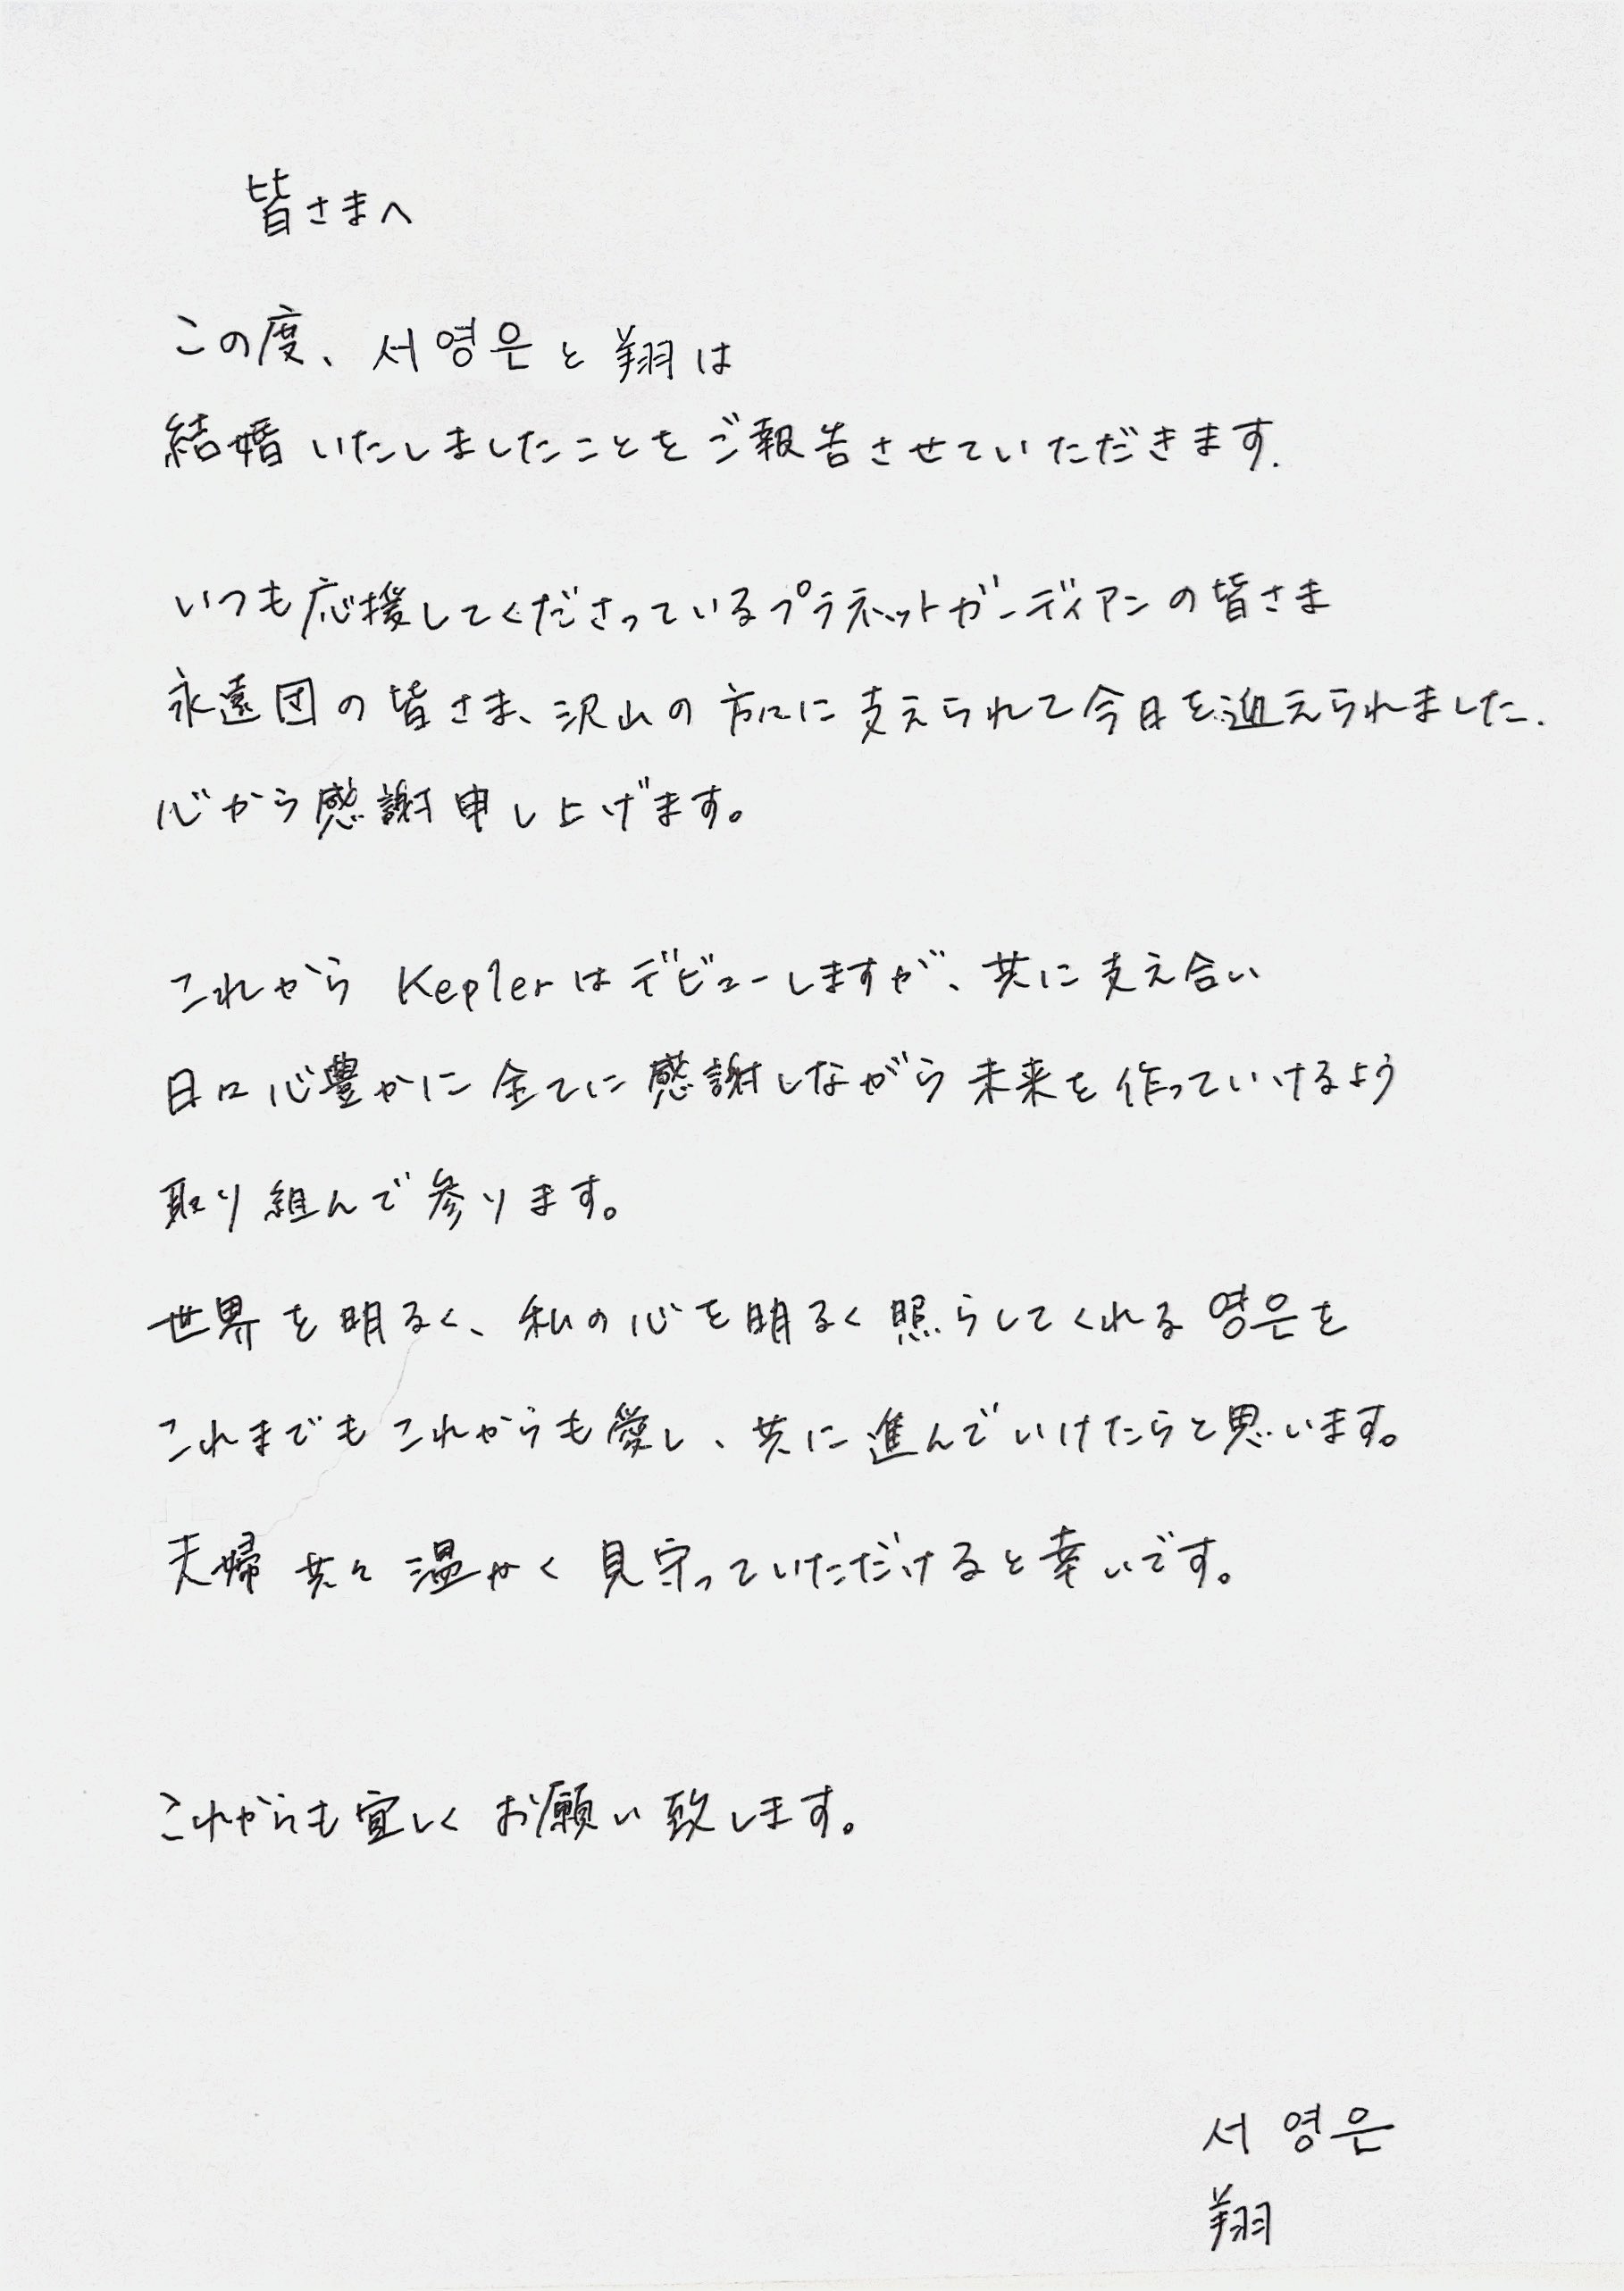 皆さまへ
この度、서영은と翔は
結婚いたしましたことをご報告させていただきます.
いつも応援してくださっているプラネットガーディアンの皆さま
永遠団の皆さま、沢山の方々に支えられて今日を迎えられました.
心から感謝申し上げます。
これから Keplerはデビューしますが、共に支え合い
日々心豊かに全てに感謝しながら未来を作っていけるよう
取り組んで参ります。
世界を明るく、私の心を明るく照らしてくれる영은を
これまでもこれからも愛し、共に進んでいけたらと思います。
夫婦共々温かく見守っていただけると幸いです。
これからも宜しくお願い致します。
서영은
翔